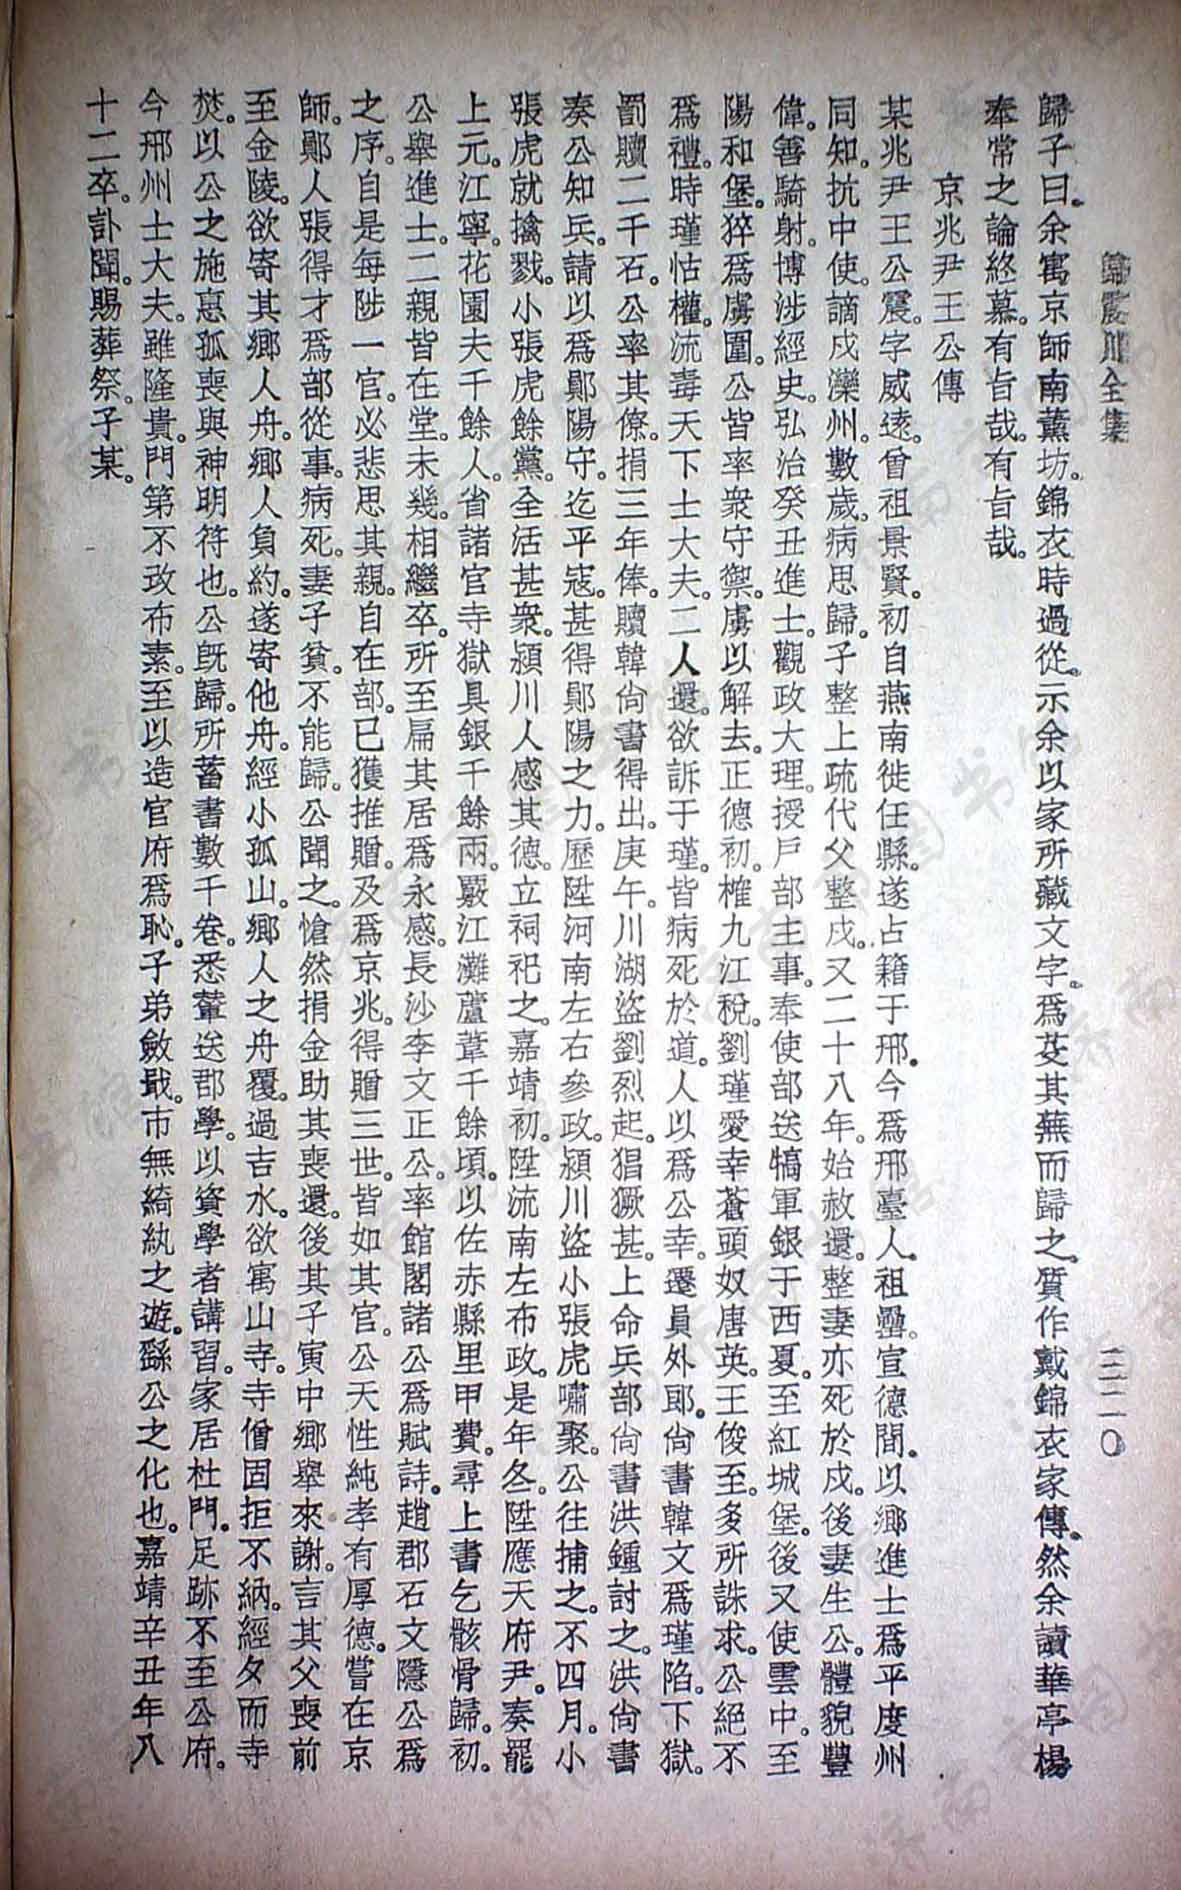 歸震川全集
三二〇
歸子曰。余寓京師南薰坊。錦衣時過從。示余以家所藏文字。爲芟其蕪而歸之。質作戴錦衣家傳。然余讀華亭楊
奉常之論終慕。有旨哉。有旨哉。
京兆尹王公傳
某兆尹王公震。字威遠。曾祖景賢。初自燕南徙任縣。遂占籍于邢。今爲邢臺人。祖罍。宣德間。以鄉進士爲平度州
同知。抗中使。謫戍灤州。數歲。病思歸。子整上疏代父整戍。又二十八年。始赦還。整妻亦死於戍。後妻生公。體貌豐
偉。善騎射。博涉經史。弘治癸丑進士。觀政大理。授戶部主事。奉使部送犒軍銀于西夏。至紅城堡。後又使雲中。至
陽和堡。猝爲虜圍。公皆率衆守禦。虜以解去。正德初。榷九江稅。劉瑾愛幸蒼頭奴唐英。王俊至。多所誅求。公絕不
爲禮。時瑾怙權。流毒天下士大夫。二人還。欲訴于瑾。皆病死於道。人以爲公幸。遷員外郎。尙書韓文爲瑾陷。下獄。
罰贖二千石。公率其僚。捐三年俸。贖韓尙書得出。庚午。川湖盜劉烈起。猖獗甚。上命兵部尙書洪鍾討之。洪尙書
奏公知兵。請以爲鄖陽守。迄平寇。甚得鄖陽之力。歷陞河南左右參政。潁川盜小張虎嘯聚。公往捕之。不四月。小
張虎就擒戮。小張虎餘黨。全活甚衆。潁川人感其德。立祠祀之。嘉靖初。陞流南左布政。是年冬。陞應天府尹。奏罷
上元。江寧。花園夫千餘人。省諸官寺獄具銀千餘兩。覈江灘蘆葦千餘頃。以佐赤縣里甲費。尋上書乞骸骨歸。初。
公舉進士。二親皆在堂。未幾。相繼卒。所至扁其居爲永感。長沙李文正公。率館閣諸公爲賦詩。趙郡石文隱公爲
之序。自是每陟一官。必悲思其親。自在部。已獲推贈。及爲京兆。得贈三世。皆如其官。公天性純孝。有厚德。嘗在京
師。鄖人張得才爲部從事。病死。妻子貧。不能歸。公聞之。愴然捐金助其喪還。後其子寅中鄉舉來謝。言其父喪前
至金陵。欲寄其鄉人舟。鄉人負約。遂寄他舟。經小孤山。鄉人之舟覆。過吉水。欲寓山寺。寺僧固拒不納。經夕而寺
焚。以公之施惠孤喪。與神明符也。公旣歸。所蓄書數千卷。悉輦送郡學。以資學者講習。家居杜門。足跡不至公府。
今邢州士大夫。雖隆貴。門第不改布素。至以造官府爲恥。子弟斂戢。市無綺紈之遊。繇公之化也。嘉靖辛丑年八
十二卒。訃聞。賜葬祭。子某。